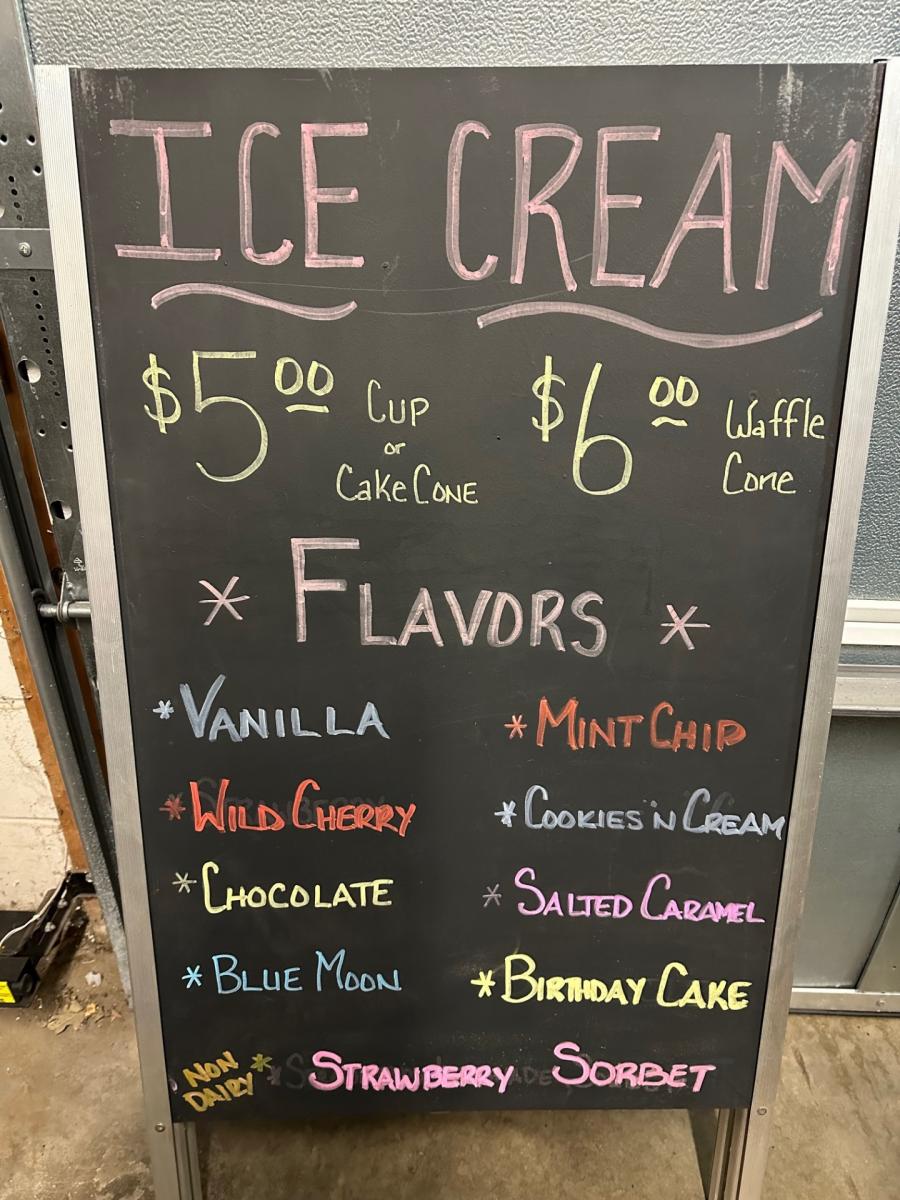 ICE CREAM
$5.00 Cup or Cake Cone
$6.00 Waffle Cone
* FLAVORS *
* VANILLA
* MINT CHIP
* WILD CHERRY
* COOKIES 'N CREAM
* CHOCOLATE
* SALTED CARAMEL
* BLUE MOON
* BIRTHDAY CAKE
NON DAIRY * STRAWBERRY SORBET